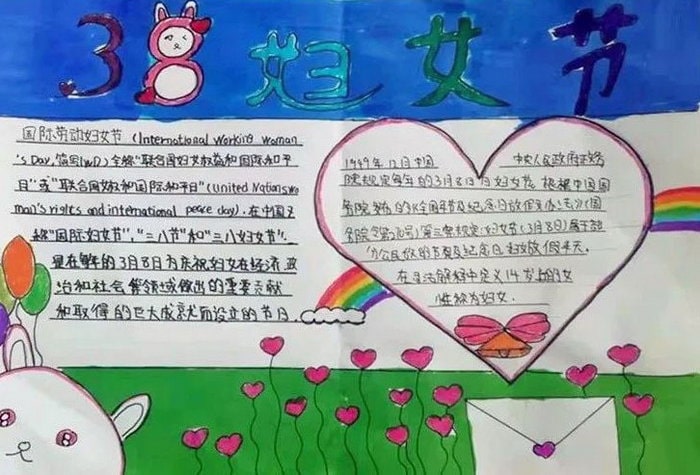 38妇女节
国际劳动妇女节 (International Working Woman
's Day, 简写IWD) 全称"联合国妇女权益和国际和平
日"或"联合国妇权和国际和平日"(United Nationswo
man's rights and international peace day). 在中国又
称"国际妇女节", "三八节"和"三八妇女节".
是在每年的3月8日为庆祝妇女在经济、政
治和社会等领域做出的重要贡献
和取得的巨大成就而设立的节日.
1949年12月中国 中央人民政府政务
院规定每年的3月8日为妇女节. 根据中国国
务院 的《全国年节及纪念日放假办法》(国
务院令第 号) 第三条规定: 妇女节(3月8日)属于部
分公民放假的节日及纪念日 妇女放假半天.
在 法解释中定义14岁以上的女
性称为妇女.